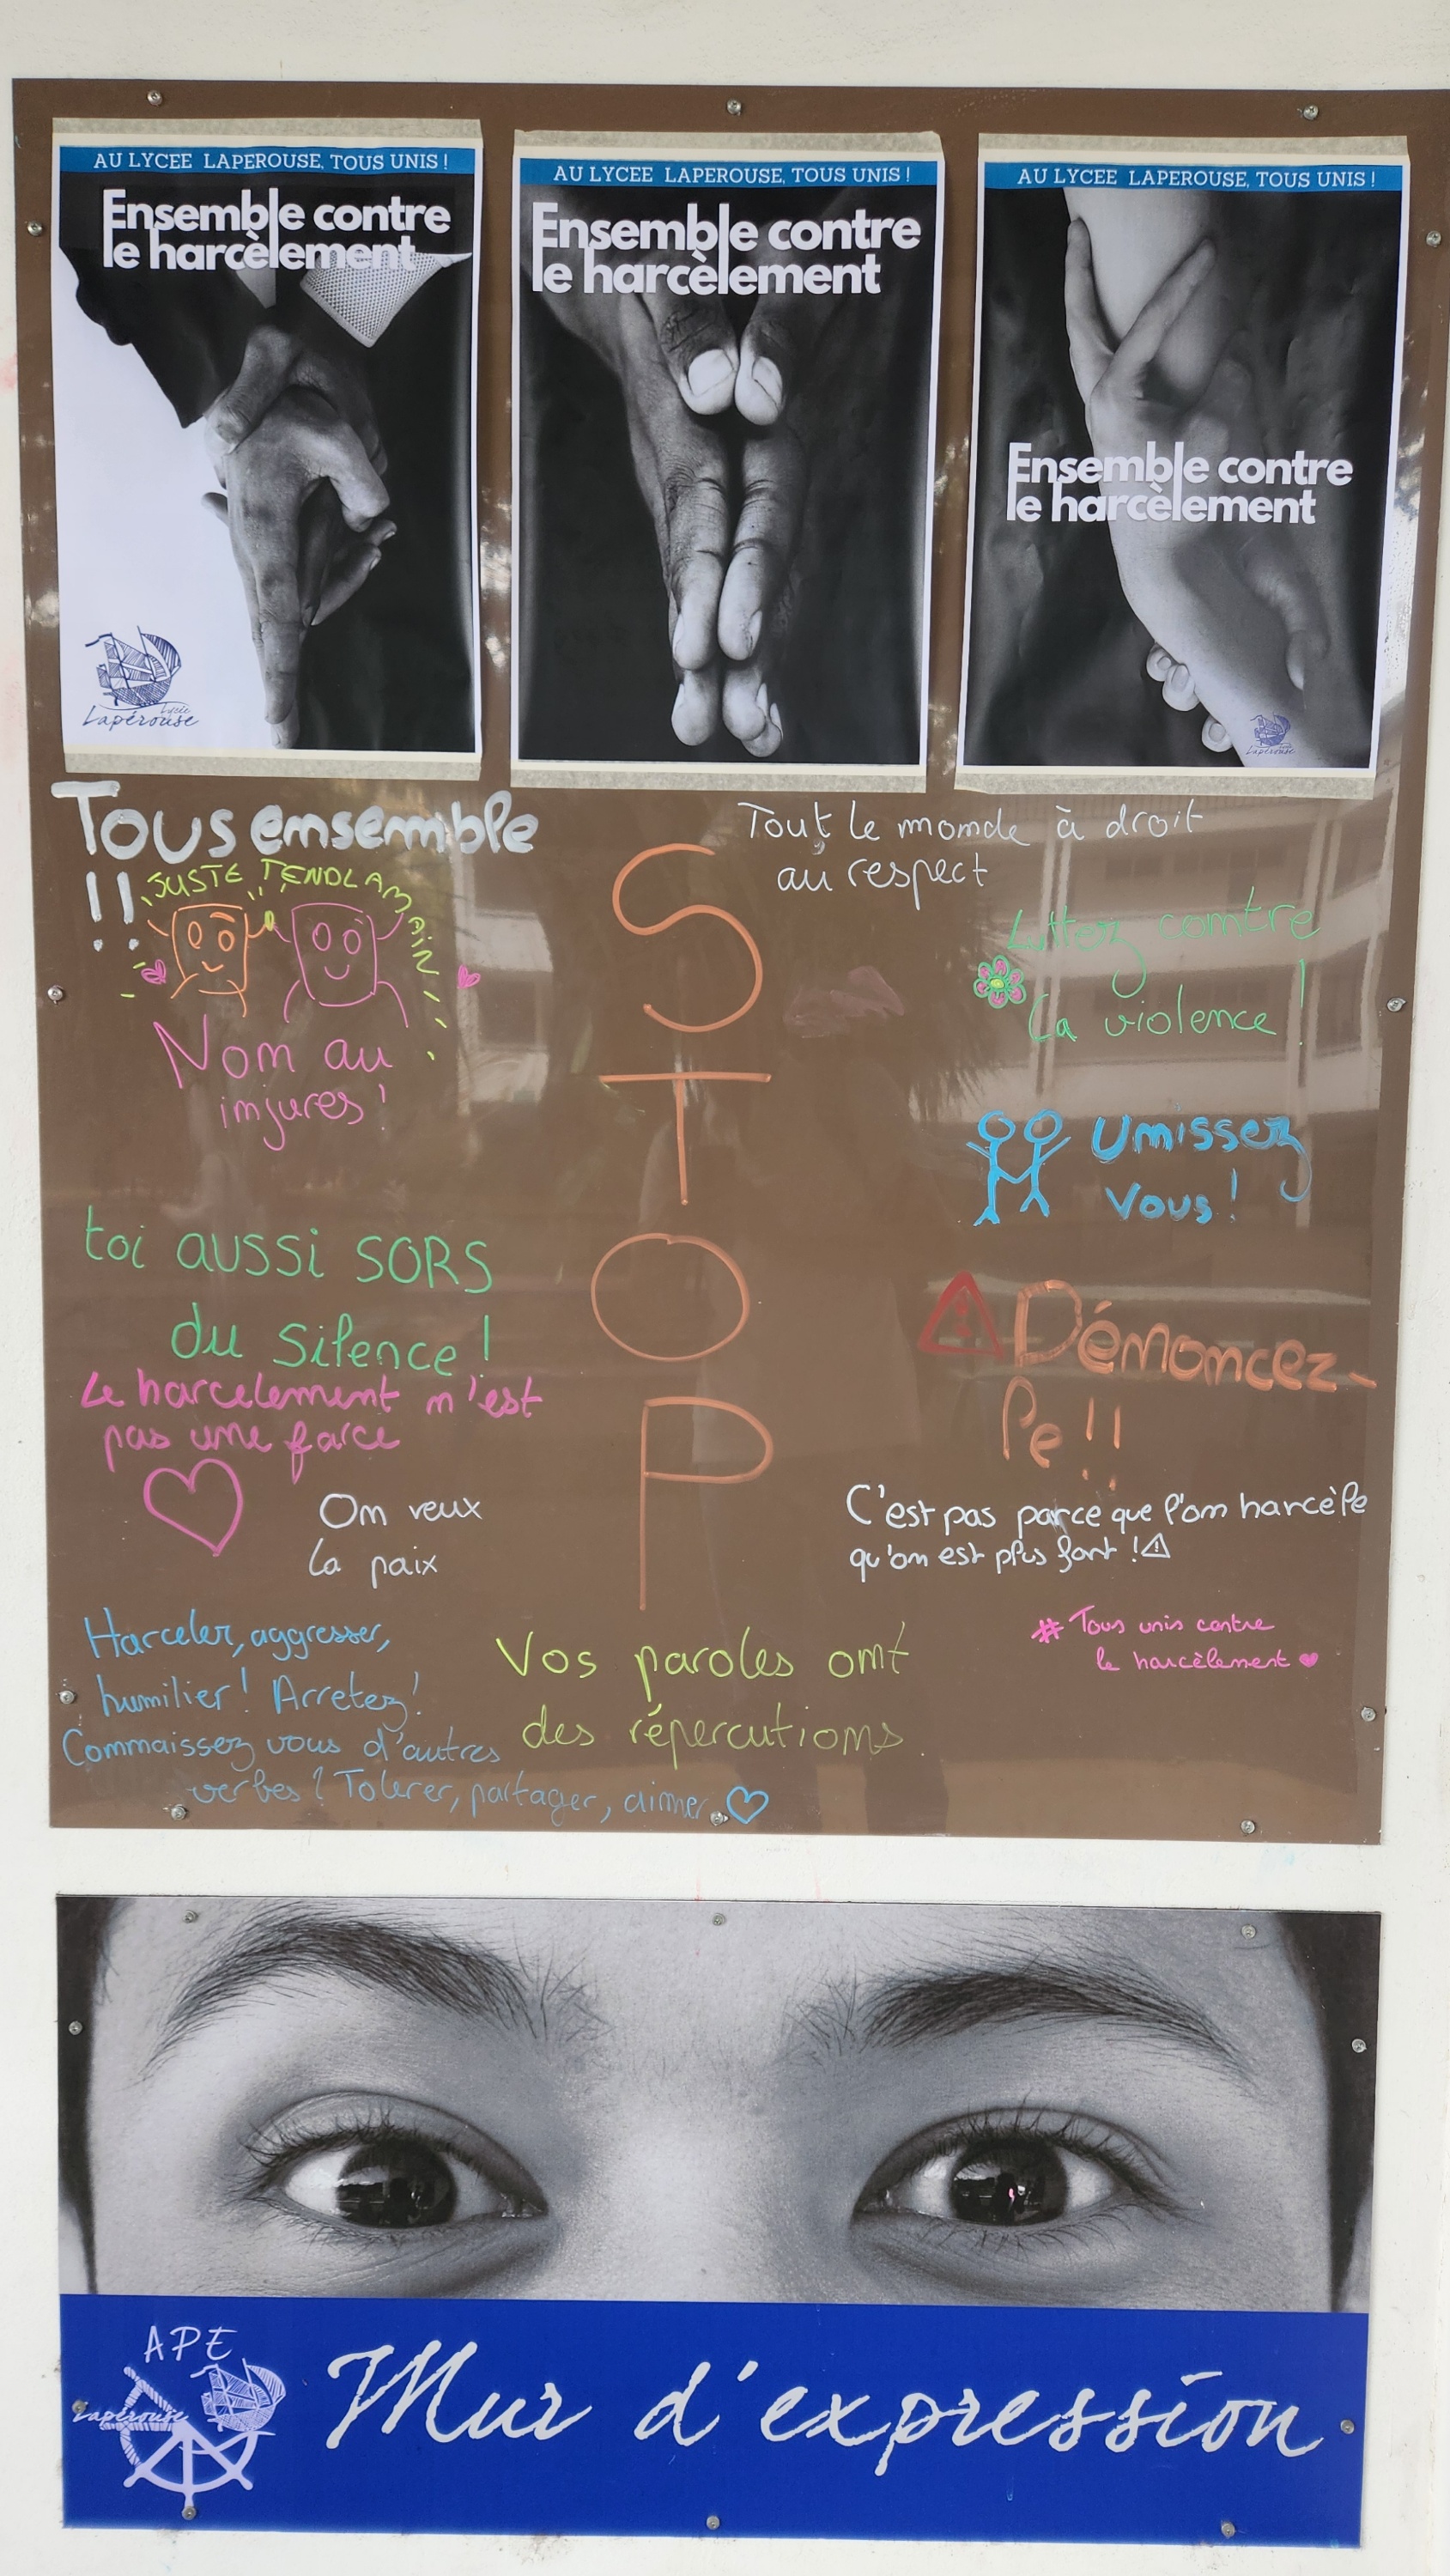 AU LYCEE LAPEROUSE, TOUS UNIS !
Ensemble contre
le harcèlement
Lycée
Lapérouse
AU LYCEE LAPEROUSE, TOUS UNIS !
Ensemble contre
le harcèlement
AU LYCEE LAPEROUSE, TOUS UNIS !
Ensemble contre
le harcèlement
Lapérouse
Tous ensemble
!!
JUSTE TEND LA MAIN
Non au
injures !
toi aussi SORS
du silence !
Le harcelement n'est
pas une farce
On veux
la paix
Harceler, aggresser,
humilier ! Arretez !
Connaissez vous d'autres
verbes ? Tolerer, partager, aimer
STOP
Vos paroles ont
des répercutions.
Tout le monde à droit
au respect
Luttez contre
la violence !
Unissez
vous !
Dénoncez-
le !!
C'est pas parce que l'on harcèle
qu'on est plus fort !
# Tous unis contre
le harcèlement
APE
Lapérouse
Mur d'expression